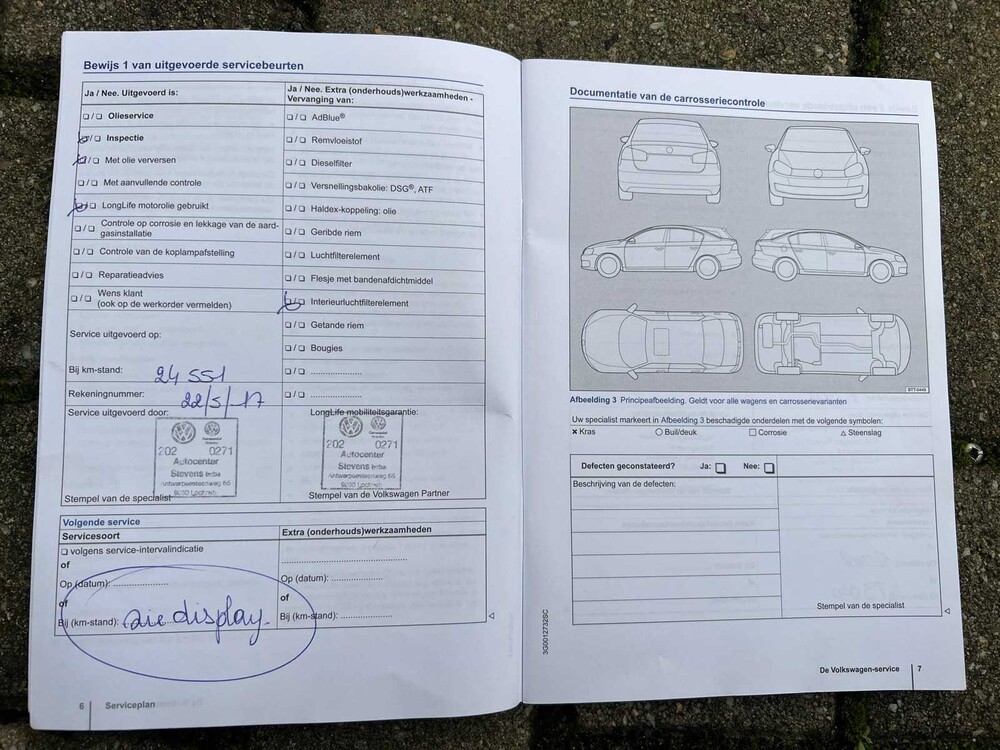 Bewijs 1 van uitgevoerde servicebeurten
Ja / Nee. Uitgevoerd is:
Olieservice
Inspectie
Met olie verversen
Met aanvullende controle
LongLife motorolie gebruikt
Controle op corrosie en lekkage van de aard-
gasinstallatie
Controle van de koplampafstelling
Reparatieadvies
Wens klant
(ook op de werkorder vermelden)
Service uitgevoerd op:
Bij km-stand: 24 551
Rekeningnummer: 22/5/-17
Service uitgevoerd door:
202 0271
Autocenter
Stevens bvba
Antwerpsesteenweg 65
9080 Lochristi
Stempel van de specialist
Ja / Nee. Extra (onderhouds)werkzaamheden -
Vervanging van:
AdBlue®
Remvloeistof
Dieselfilter
Versnellingsbakolie: DSG®, ATF
Haldex-koppeling: olie
Geribde riem
Luchtfilterelement
Flesje met bandenafdichtmiddel
Interieurluchtfilterelement
Getande riem
Bougies
LongLife mobiliteitsgarantie:
202 0271
Autocenter
Stevens bvba
Antwerpsesteenweg 65
9080 Lochristi
Stempel van de Volkswagen Partner
Volgende service
Servicesoort
volgens service-intervalindicatie
of
Op (datum): ....................
of
Bij (km-stand): zie display
Extra (onderhouds)werkzaamheden
Op (datum): ...................
of
Bij (km-stand): ...................
6 Serviceplan
Documentatie van de carrosseriecontrole
BTT-0449
Afbeelding 3 Principeafbeelding. Geldt voor alle wagens en carrosserievarianten
Uw specialist markeert in Afbeelding 3 beschadigde onderdelen met de volgende symbolen:
× Kras ○ Buil/deuk □ Corrosie △ Steenslag
Defecten geconstateerd? Ja: □ Nee: □
Beschrijving van de defecten:
Stempel van de specialist
3G0012732SC
De Volkswagen-service 7